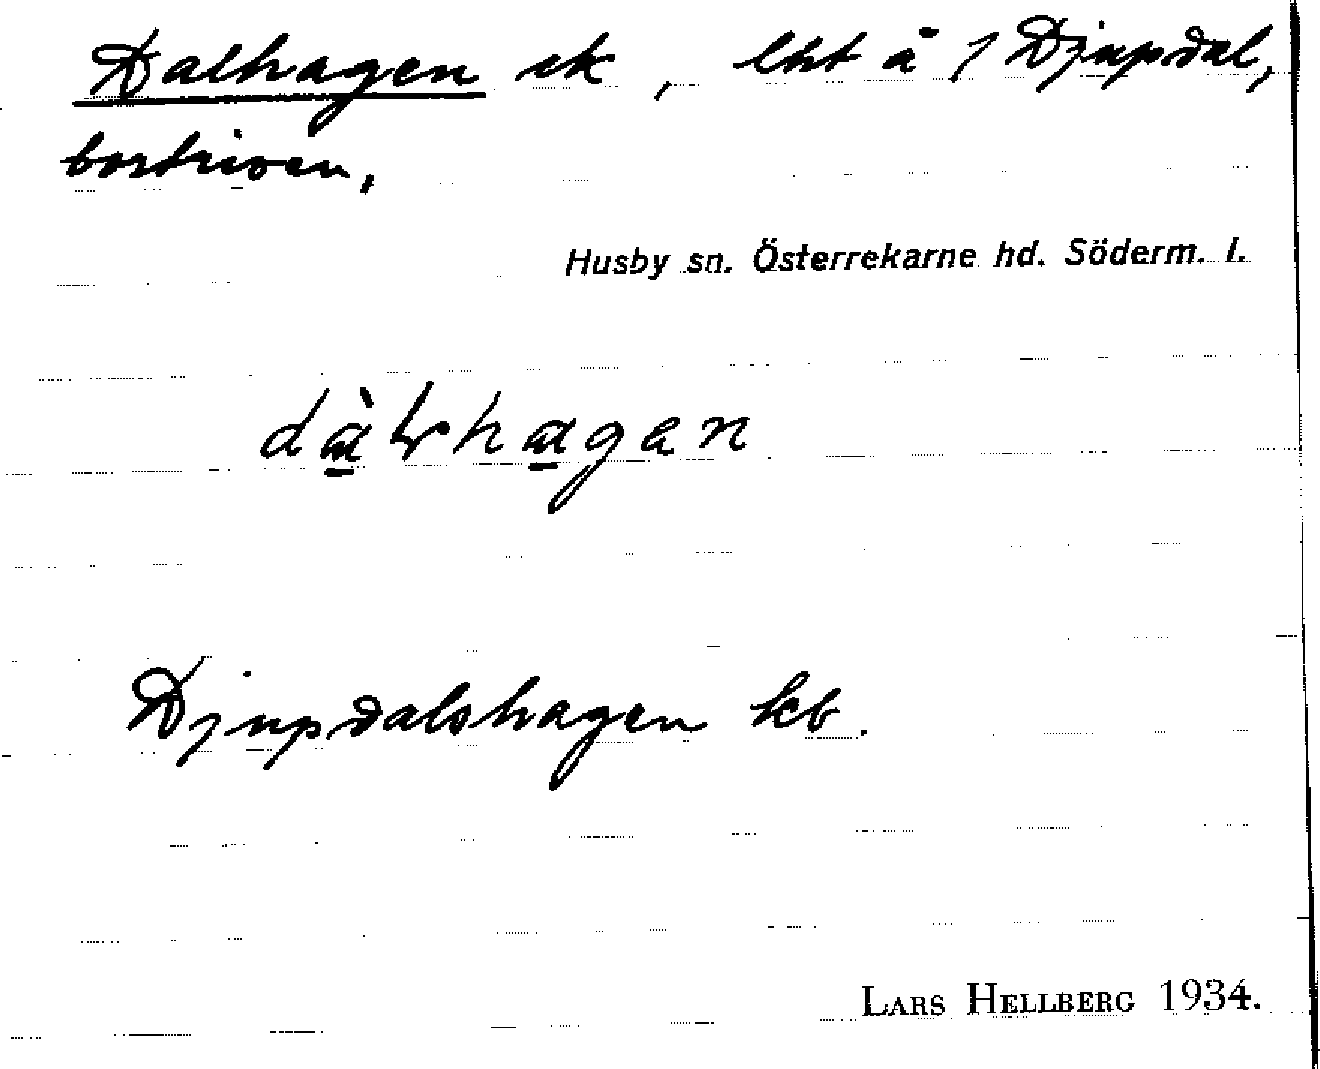 Dalhagen ek, lht å 1 Djupdal,
bortriven,
Husby sn. Österrekarne hd. Söderm. l.
dàlhagan
Djupdalshagen kb.
LARS HELLBERG 1934.